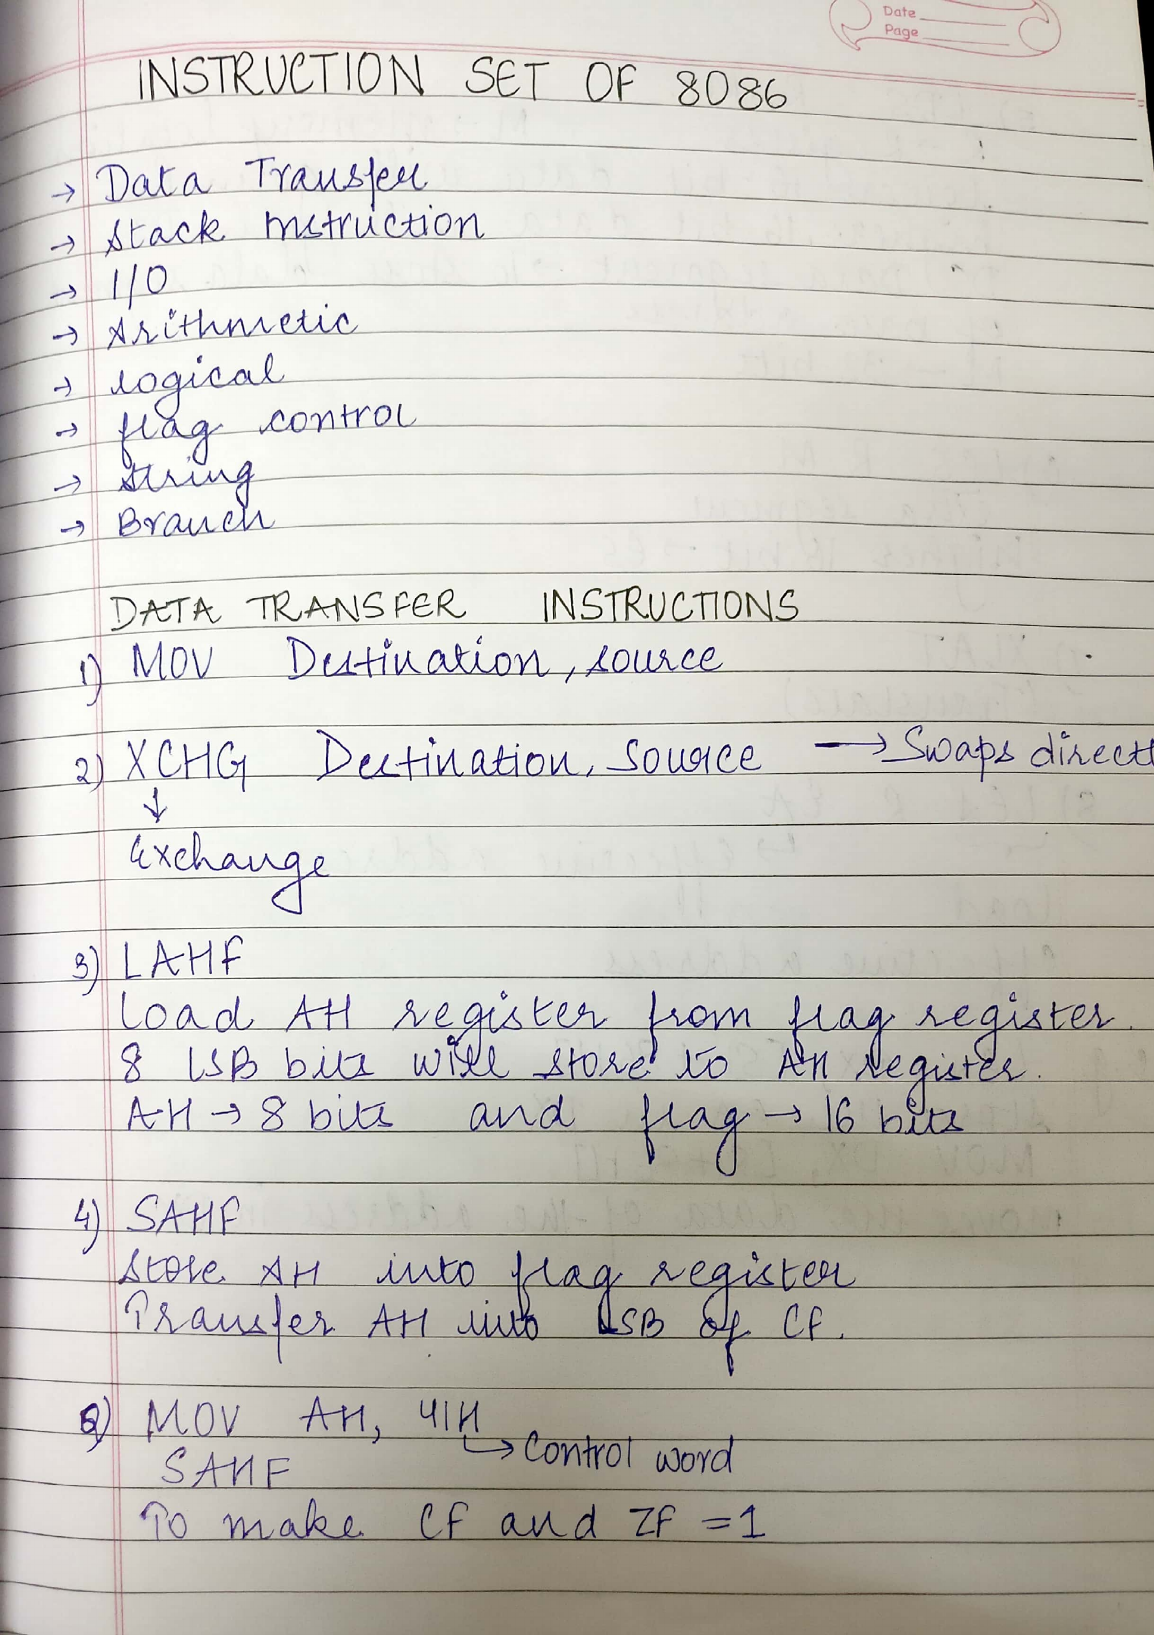 Date
Page
INSTRUCTION SET OF 8086
→ Data Transfer
→ Stack Instruction
→ I/O
→ Arithmetic
→ logical
→ flag control
→ String
→ Branch
DATA TRANSFER INSTRUCTIONS
1) MOV Destination, source
2) XCHG Destination, source → Swaps direct
↓
Exchange
3) LAHF
Load AH register from flag register.
8 LSB bits will store to AH register.
AH → 8 bits and flag → 16 bits
4) SAHF
Store AH into flag register
Transfer AH into LSB of CF.
Q) MOV AH, 41H
→ Control word
SAHF
To make CF and ZF = 1